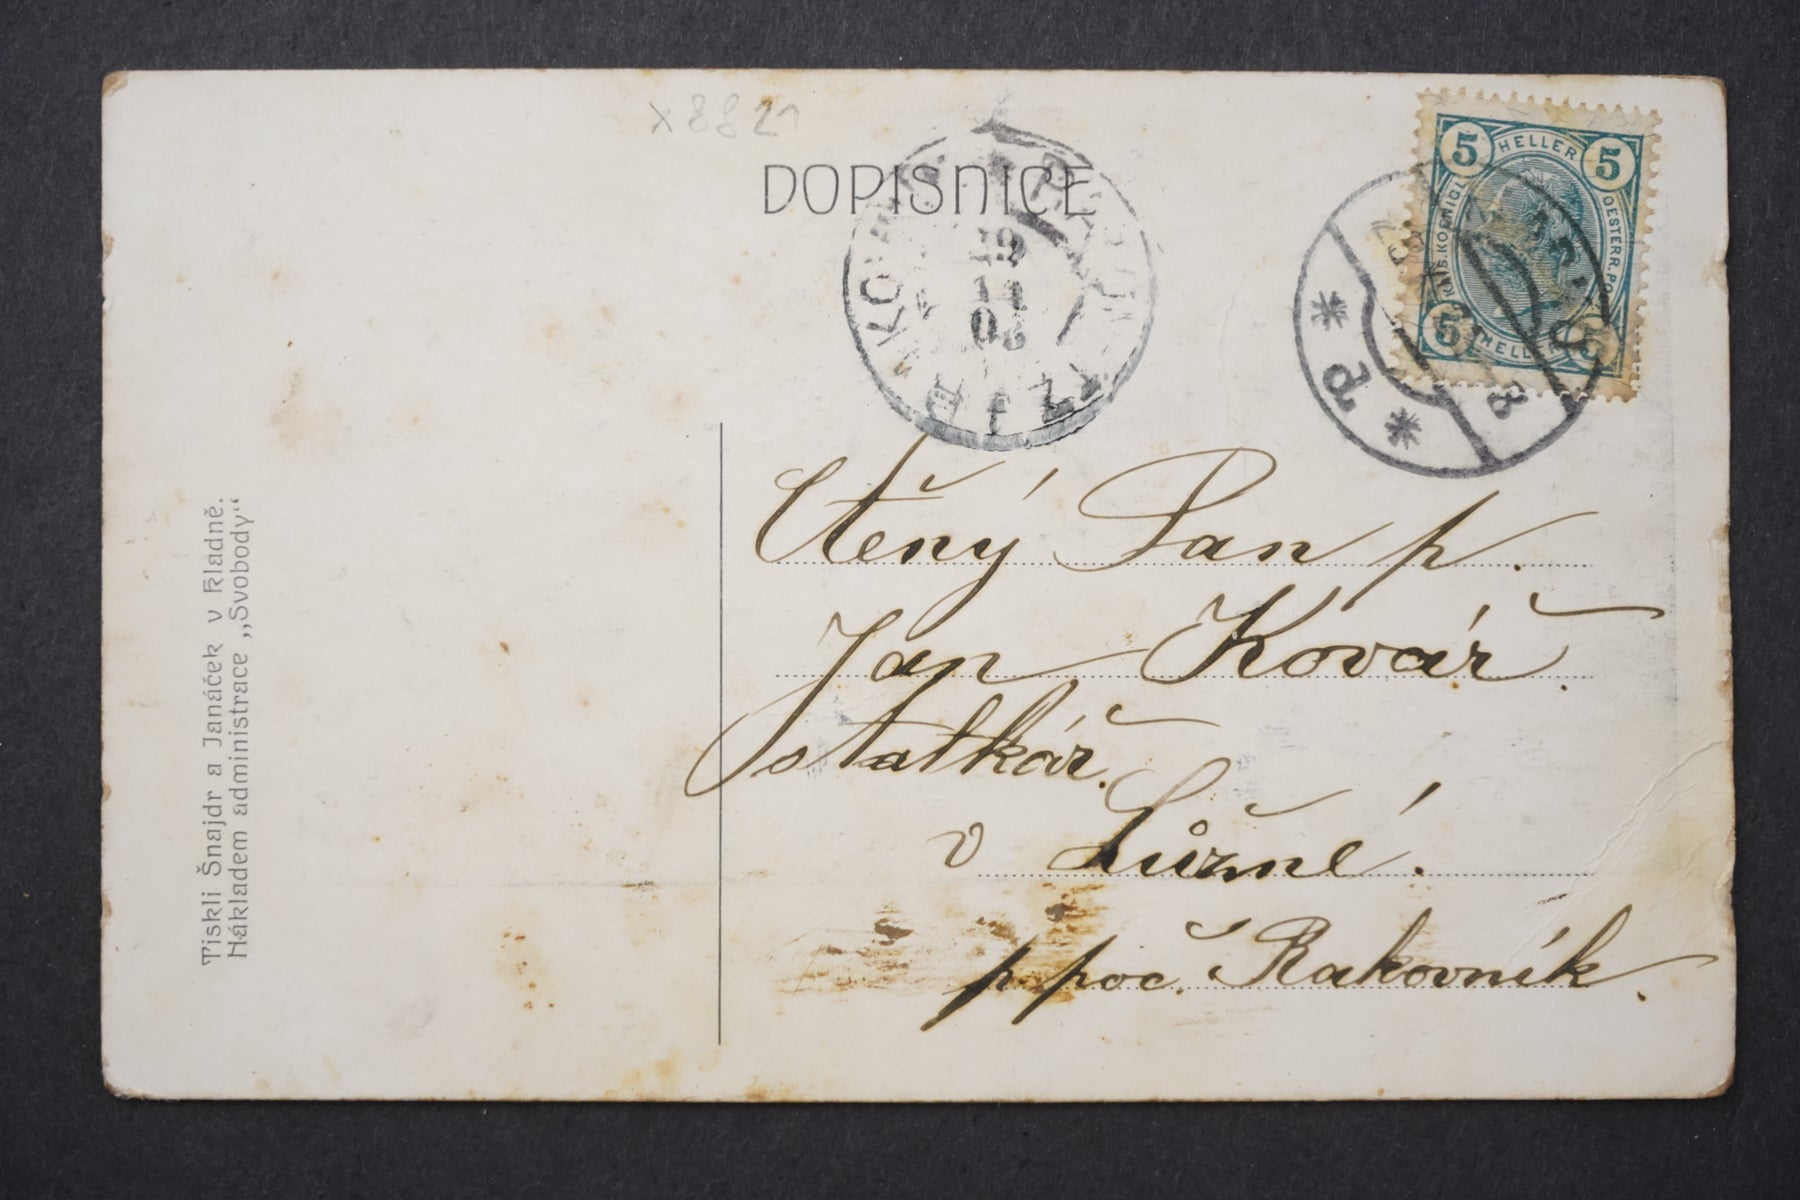 x 8821
DOPISNICE
5 HELLER 5
KAIS. KOENIGL. OESTERR. POST
5 HELLER 5
19
11
* d *
Ctěný Pan p.
Jan Kovář.
statkář.
v Lůžné.
p. poč. Rakovník.
Tiskli Šnajdr a Janáček v Kladně.
Nákladem administrace „Svobody“